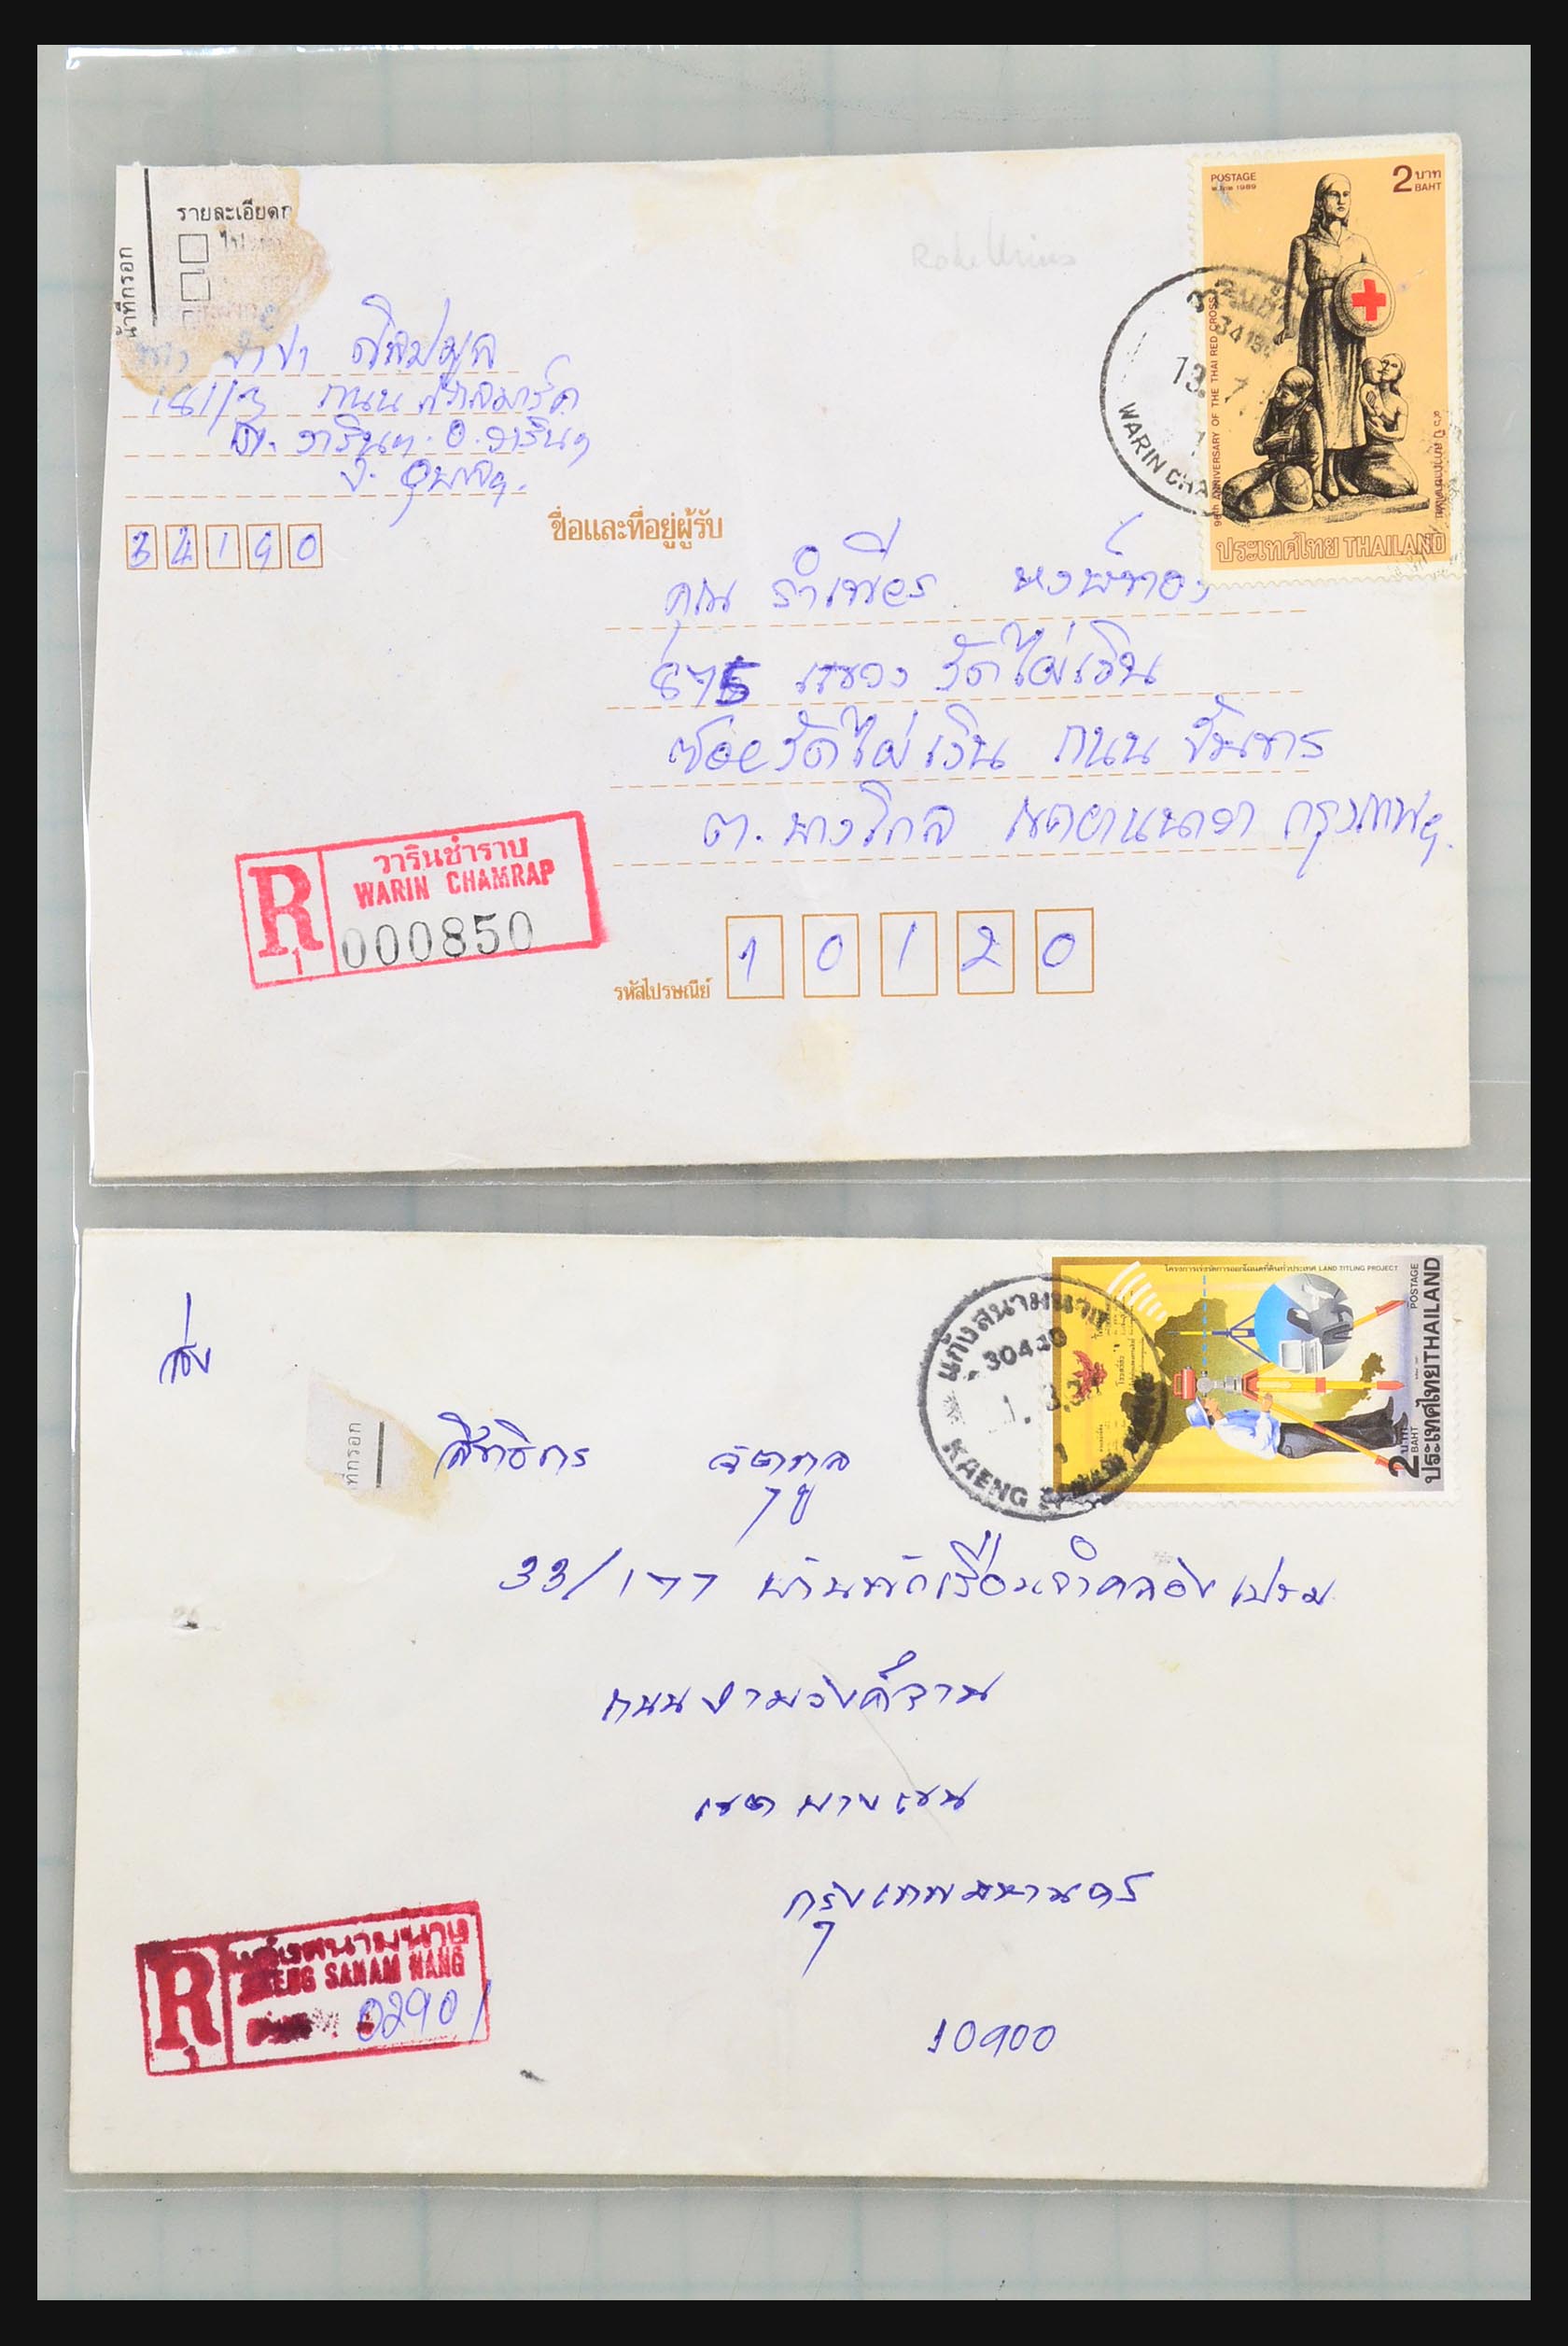 รายละเอียด
POSTAGE
1989
2 บาท
BAHT
34190
WARIN CHA
96th ANNIVERSARY OF THE THAI RED CROSS
ประเทศไทย THAILAND
ถนน
ต. วารินฯ. อ. วารินฯ
จ. อุบลฯ.
34190
ชื่อและที่อยู่ผู้รับ
คุณ รำเพียร หงษ์ทอง
675 แขวง วัดไผ่เงิน
ซอยวัดไผ่เงิน ถนน จันทร์
ต. บางโคล่ เขตยานนาวา กรุงเทพฯ.
R
1
วารินชำราบ
WARIN CHAMRAP
000850
รหัสไปรษณีย์
10120
โครงการเร่งรัดการออกโฉนดที่ดินทั่วประเทศ LAND TITLING PROJECT
POSTAGE
ประเทศไทย THAILAND
2 บาท
BAHT
แก้งสนามนาง
30440
KAENG SANAM NANG
ส่ง
ที่กรอก
สิทธิกร จิตกูล
33/177 บ้านพักเรือนจำคลองเปรม
ถนน งามวงศ์วาน
เขต บางเขน
กรุงเทพมหานคร
10900
R
1
แก้งสนามนาง
KAENG SANAM NANG
02901